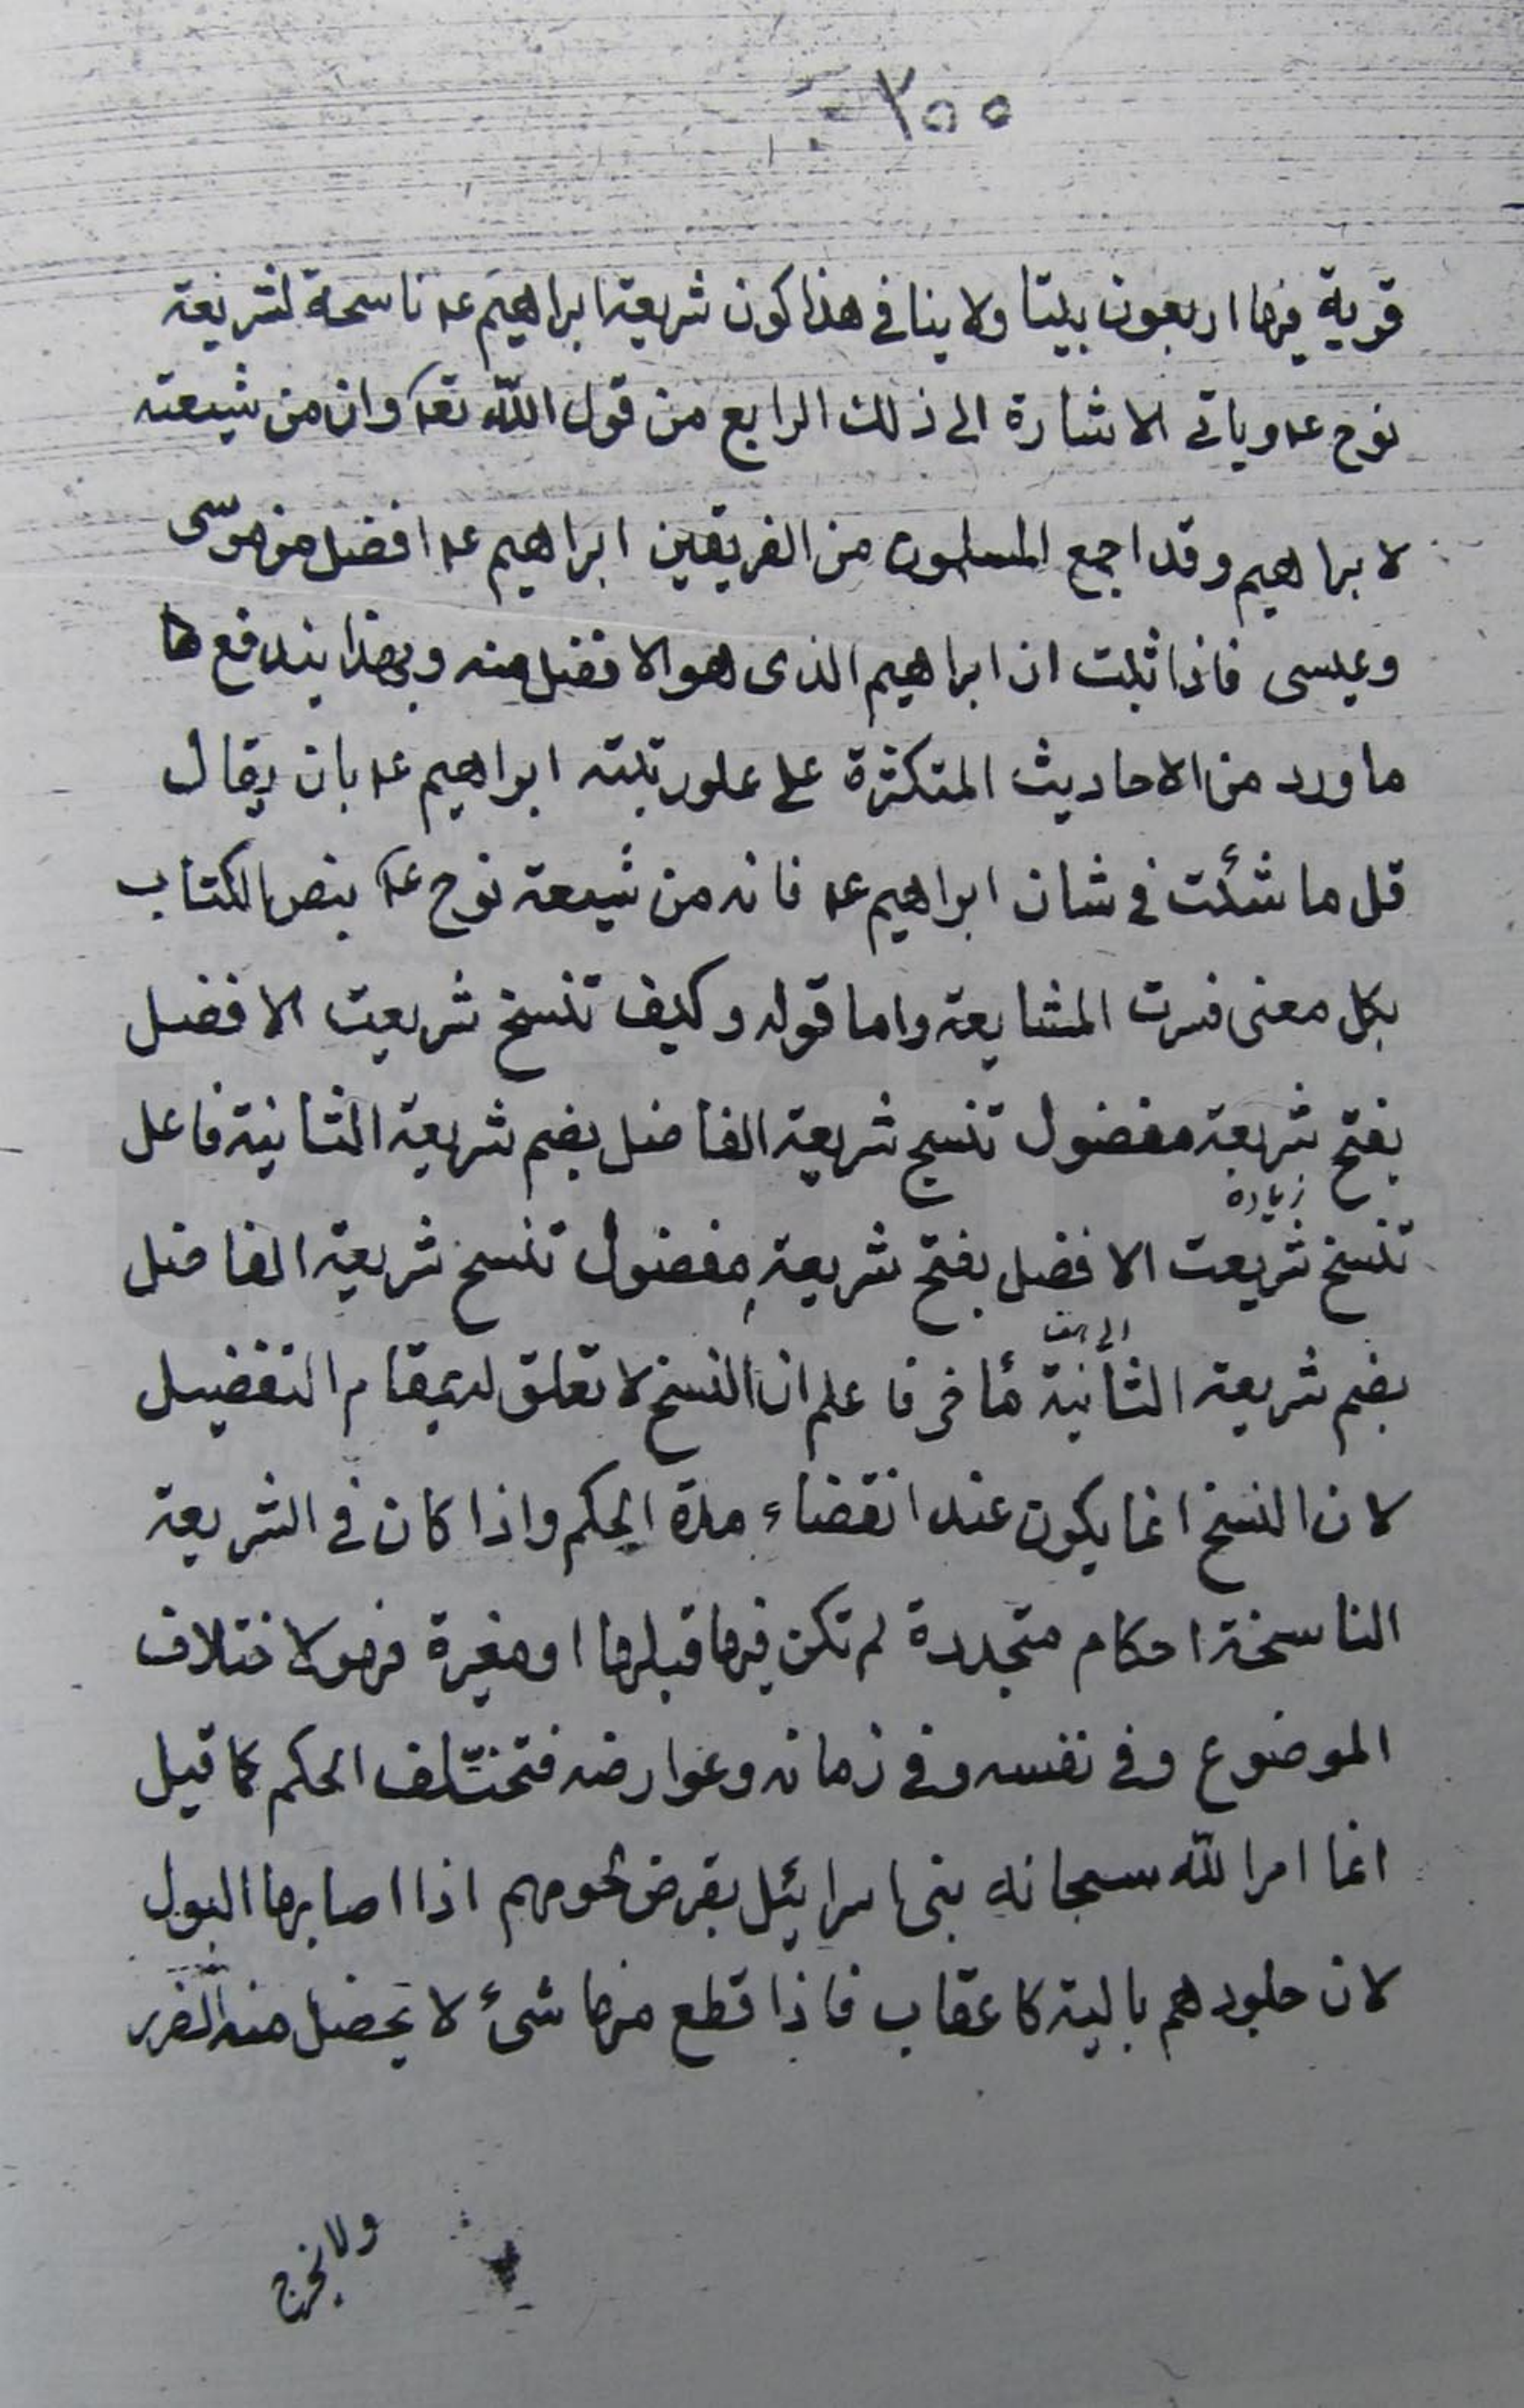 ٢٥٥
قرية فيها اربعون بيتا ولا ينافى هذا كون شريعة ابراهيم عه ناسخة لشريعة
نوح عه وياتى الاشارة الى ذلك الرابع من قول الله تعه وان من شيعته
لابراهيم وقد اجمع المسلمون من الفريقين ابراهيم عه افضل من موسى
وعيسى فاذا ثبت ان ابراهيم الذى هو الافضل منه وبهذا يندفع
ما ورد من الاحاديث المتكثرة على علو رتبته ابراهيم عه بان يقال
قل ما شئت فى شان ابراهيم عه فانه من شيعة نوح عه بنص الكتاب
بكل معنى فسرت المشايعة واما قوله وكيف تنسخ شريعت الافضل
بفتح شريعة مفضول تنسخ شريعة الفاضل بضم شريعة الثانية فاعل
زيادة
تنسخ شريعت الافضل بفتح شريعة مفضول تنسخ شريعة الفاضل
بضم شريعة الثانية فاعلم ان النسخ لا تعلق له بمقام التفضيل
لان النسخ انما يكون عند انقضاء مدة الحكم واذا كان فى الشريعة
الناسخة احكام متجددة لم تكن فيها قبلها او مغيرة فهو لاختلاف
الموضوع وفى نفسه وفى زمانه وعوارضه فتختلف الحكم كما قيل
انما امر الله سبحانه بنى اسرائيل بقرض لحومهم اذا اصابها البول
لان جلودهم بالية كاعقاب فاذا قطع منها شئ لا يحصل منه الضرر
ولا يخرج